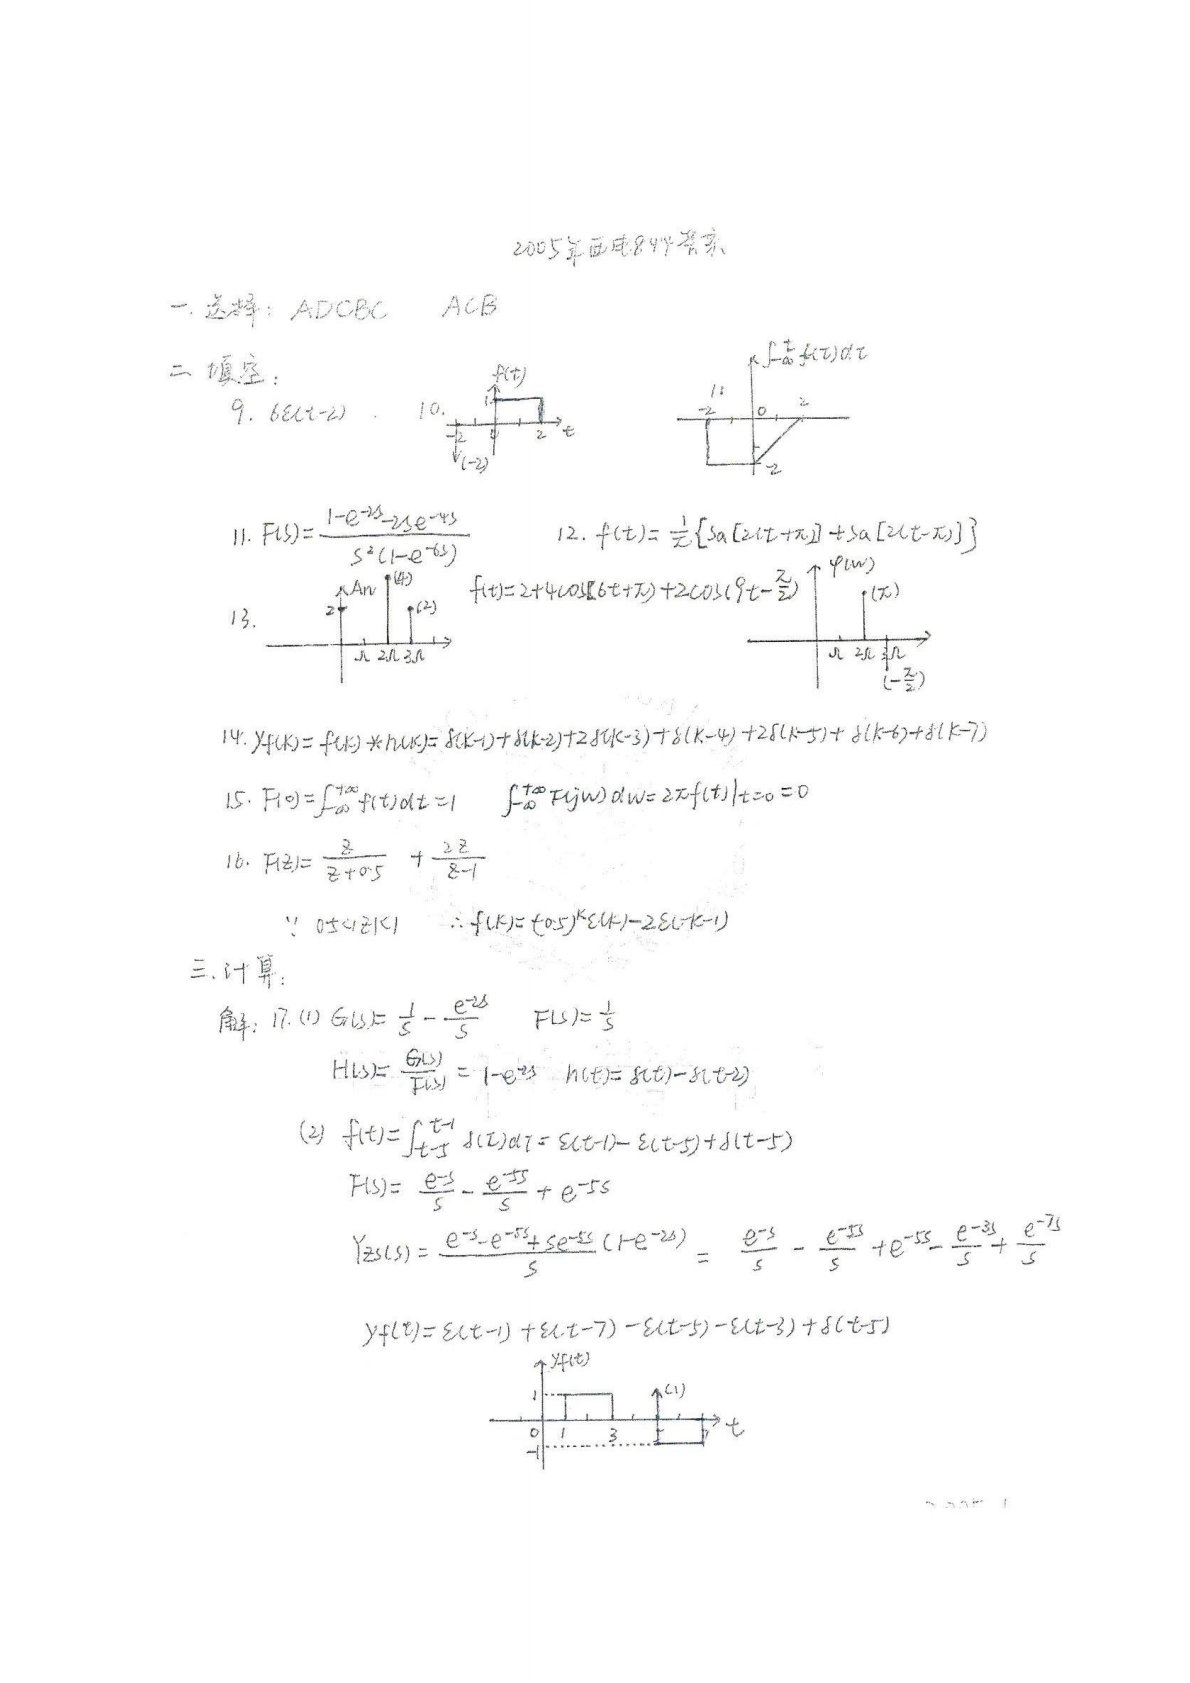 2005年西电844答案
一.选择: ADCBC ACB
二 填空:
9. 6ε(t-2) . 10. f(t) 1 -2 0 2 t (-2)
∫-∞^t f(τ)dτ -2 0 2 -2
11. F(s)= (1-e^-2s-2se^-4s)/(s²(1-e^-6s)) 12. f(t)= 1/π{Sa[2(t+π)]+Sa[2(t-π)]}
13. An 2 (4) (2) Ω 2Ω 3Ω f(t)=2+4cos(6t+π)+2cos(9t-π/2) φ(w) (π) Ω 2Ω 3Ω (-π/2)
14. yf(k)= f(k)*h(k)= δ(k-1)+δ(k-2)+2δ(k-3)+δ(k-4)+2δ(k-5)+δ(k-6)+δ(k-7)
15. F(0)=∫-∞^+∞ f(t)dt=1 ∫-∞^+∞ F(jw)dw=2πf(t)|t=0=0
16. F(z)= z/(z+0.5) + 2z/(z-1)
∵ 0.5<|z|<1 ∴ f(k)=(-0.5)^kε(k)-2ε(-k-1)
三.计算:
解: 17.(1) G(s)= 1/s - e^-2s/s F(s)= 1/s
H(s)= G(s)/F(s) = 1-e^-2s h(t)= δ(t)-δ(t-2)
(2) f(t)=∫t-5^t-1 δ(τ)dτ= ε(t-1)-ε(t-5)+δ(t-5)
F(s)= e^-s/s - e^-5s/s + e^-5s
Yzs(s)= (e^-s-e^-5s+se^-5s)/s (1-e^-2s) = e^-s/s - e^-5s/s +e^-5s- e^-3s/s + e^-7s/s
yf(t)= ε(t-1)+ε(t-7)-ε(t-5)-ε(t-3)+δ(t-5)
yf(t) 1 (1) 0 1 3 7 t -1